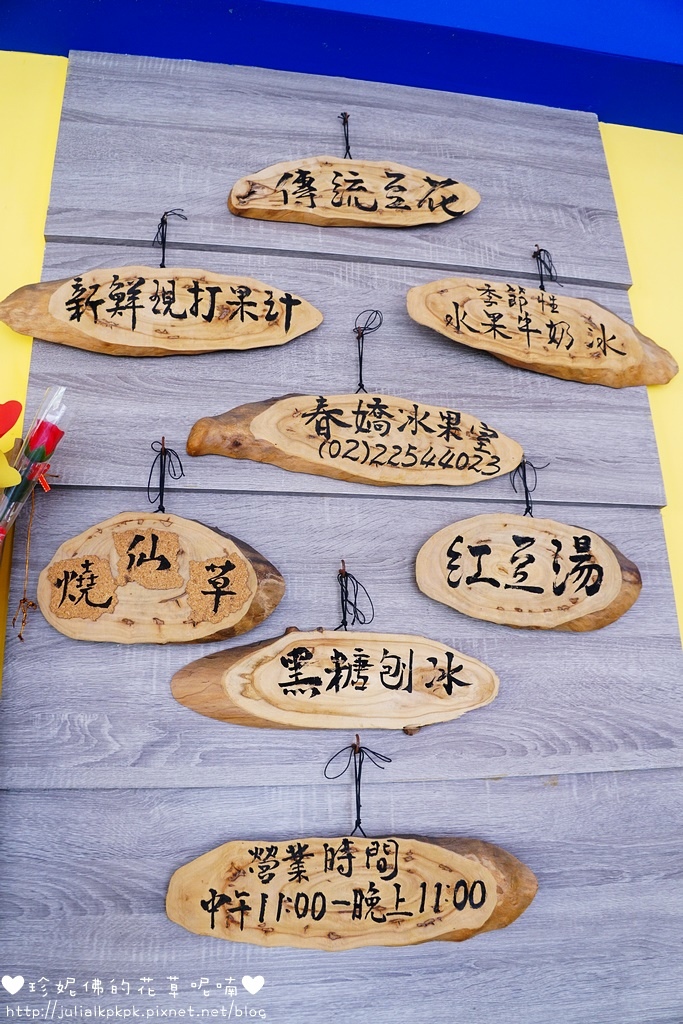 傳統豆花
新鮮現打果汁
季節性
水果牛奶冰
春嬌冰果室
(02)22544023
燒仙草
紅豆湯
黑糖刨冰
營業時間
中午11:00-晚上11:00
♥珍妮佛的花草呢喃♥
http://julialkpkpk.pixnet.net/blog